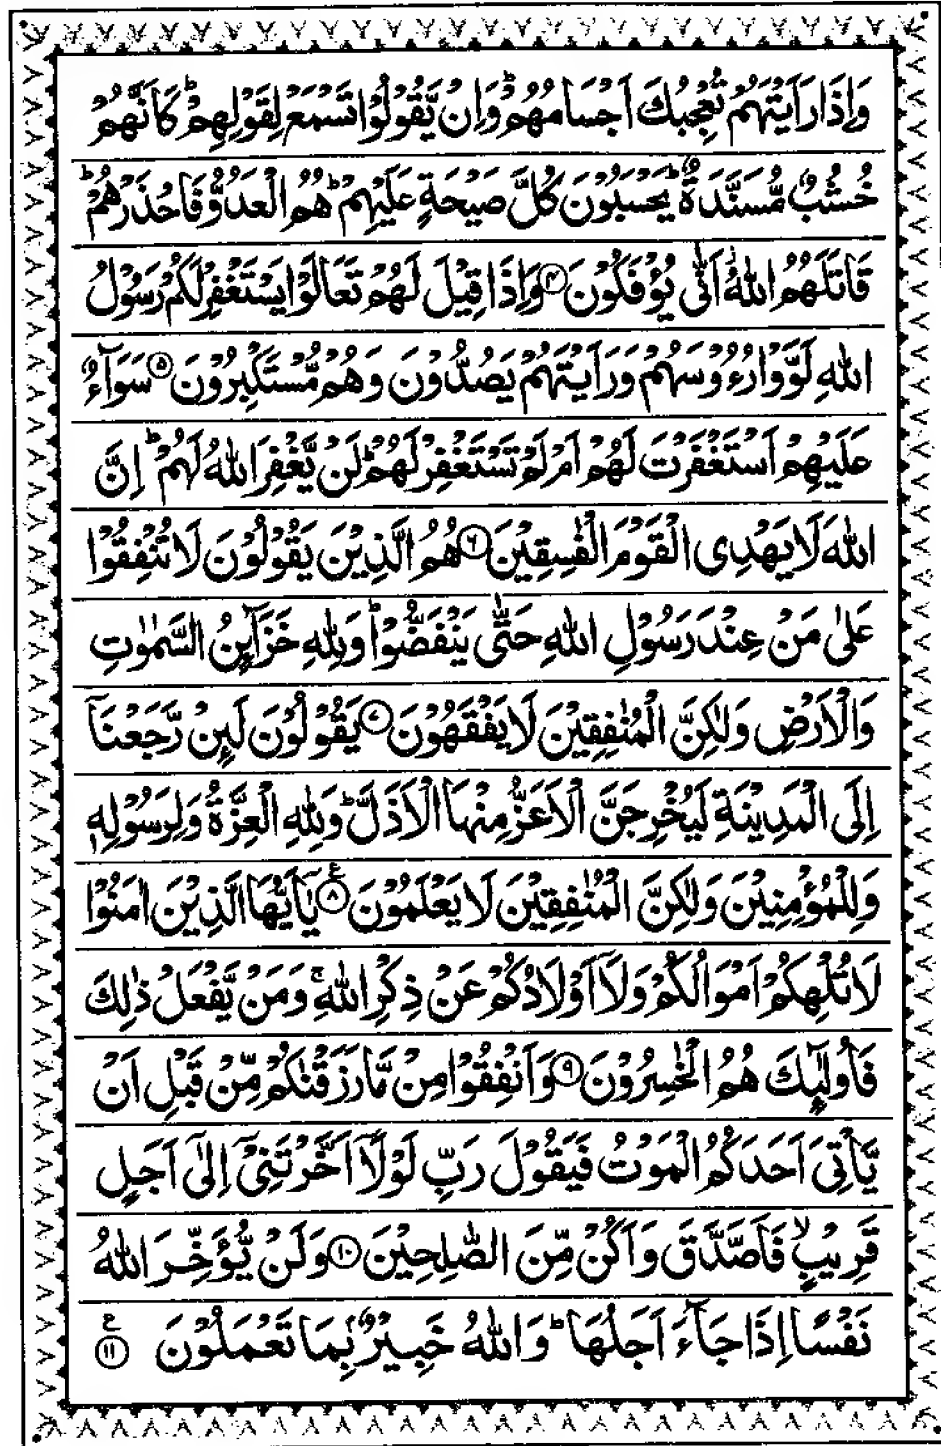 وَاِذَا رَاَيْتَهُمْ تُعْجِبُكَ اَجْسَامُهُمْ ؕ وَاِنْ يَّقُوْلُوْا تَسْمَعْ لِقَوْلِهِمْ ؕ كَاَنَّهُمْ
خُشُبٌ مُّسَنَّدَةٌ ؕ يَحْسَبُوْنَ كُلَّ صَيْحَةٍ عَلَيْهِمْ ؕ هُمُ الْعَدُوُّ فَاحْذَرْهُمْ ؕ
قَاتَلَهُمُ اللّٰهُ ۫ اَنّٰى يُؤْفَكُوْنَ ۴ وَاِذَا قِيْلَ لَهُمْ تَعَالَوْا يَسْتَغْفِرْ لَكُمْ رَسُوْلُ
اللّٰهِ لَوَّوْا رُءُوْسَهُمْ وَرَاَيْتَهُمْ يَصُدُّوْنَ وَهُمْ مُّسْتَكْبِرُوْنَ ۵ سَوَآءٌ
عَلَيْهِمْ اَسْتَغْفَرْتَ لَهُمْ اَمْ لَمْ تَسْتَغْفِرْ لَهُمْ ؕ لَنْ يَّغْفِرَ اللّٰهُ لَهُمْ ؕ اِنَّ
اللّٰهَ لَا يَهْدِى الْقَوْمَ الْفٰسِقِيْنَ ۶ هُمُ الَّذِيْنَ يَقُوْلُوْنَ لَا تُنْفِقُوْا
عَلٰى مَنْ عِنْدَ رَسُوْلِ اللّٰهِ حَتّٰى يَنْفَضُّوْا ؕ وَلِلّٰهِ خَزَآئِنُ السَّمٰوٰتِ
وَالْاَرْضِ وَلٰكِنَّ الْمُنٰفِقِيْنَ لَا يَفْقَهُوْنَ ۷ يَقُوْلُوْنَ لَئِنْ رَّجَعْنَاۤ
اِلَى الْمَدِيْنَةِ لَيُخْرِجَنَّ الْاَعَزُّ مِنْهَا الْاَذَلَّ ؕ وَلِلّٰهِ الْعِزَّةُ وَلِرَسُوْلِهٖ
وَلِلْمُؤْمِنِيْنَ وَلٰكِنَّ الْمُنٰفِقِيْنَ لَا يَعْلَمُوْنَ ۸ ع يٰۤاَيُّهَا الَّذِيْنَ اٰمَنُوْا
لَا تُلْهِكُمْ اَمْوَالُكُمْ وَلَاۤ اَوْلَادُكُمْ عَنْ ذِكْرِ اللّٰهِ ۚ وَمَنْ يَّفْعَلْ ذٰلِكَ
فَاُولٰٓئِكَ هُمُ الْخٰسِرُوْنَ ۹ وَاَنْفِقُوْا مِنْ مَّا رَزَقْنٰكُمْ مِّنْ قَبْلِ اَنْ
يَّاْتِىَ اَحَدَكُمُ الْمَوْتُ فَيَقُوْلَ رَبِّ لَوْلَاۤ اَخَّرْتَنِىْۤ اِلٰٓى اَجَلٍ
قَرِيْبٍ ۙ فَاَصَّدَّقَ وَاَكُنْ مِّنَ الصّٰلِحِيْنَ ۱۰ وَلَنْ يُّؤَخِّرَ اللّٰهُ
نَفْسًا اِذَا جَآءَ اَجَلُهَا ؕ وَاللّٰهُ خَبِيْرٌۢ بِمَا تَعْمَلُوْنَ ۱۱ ع